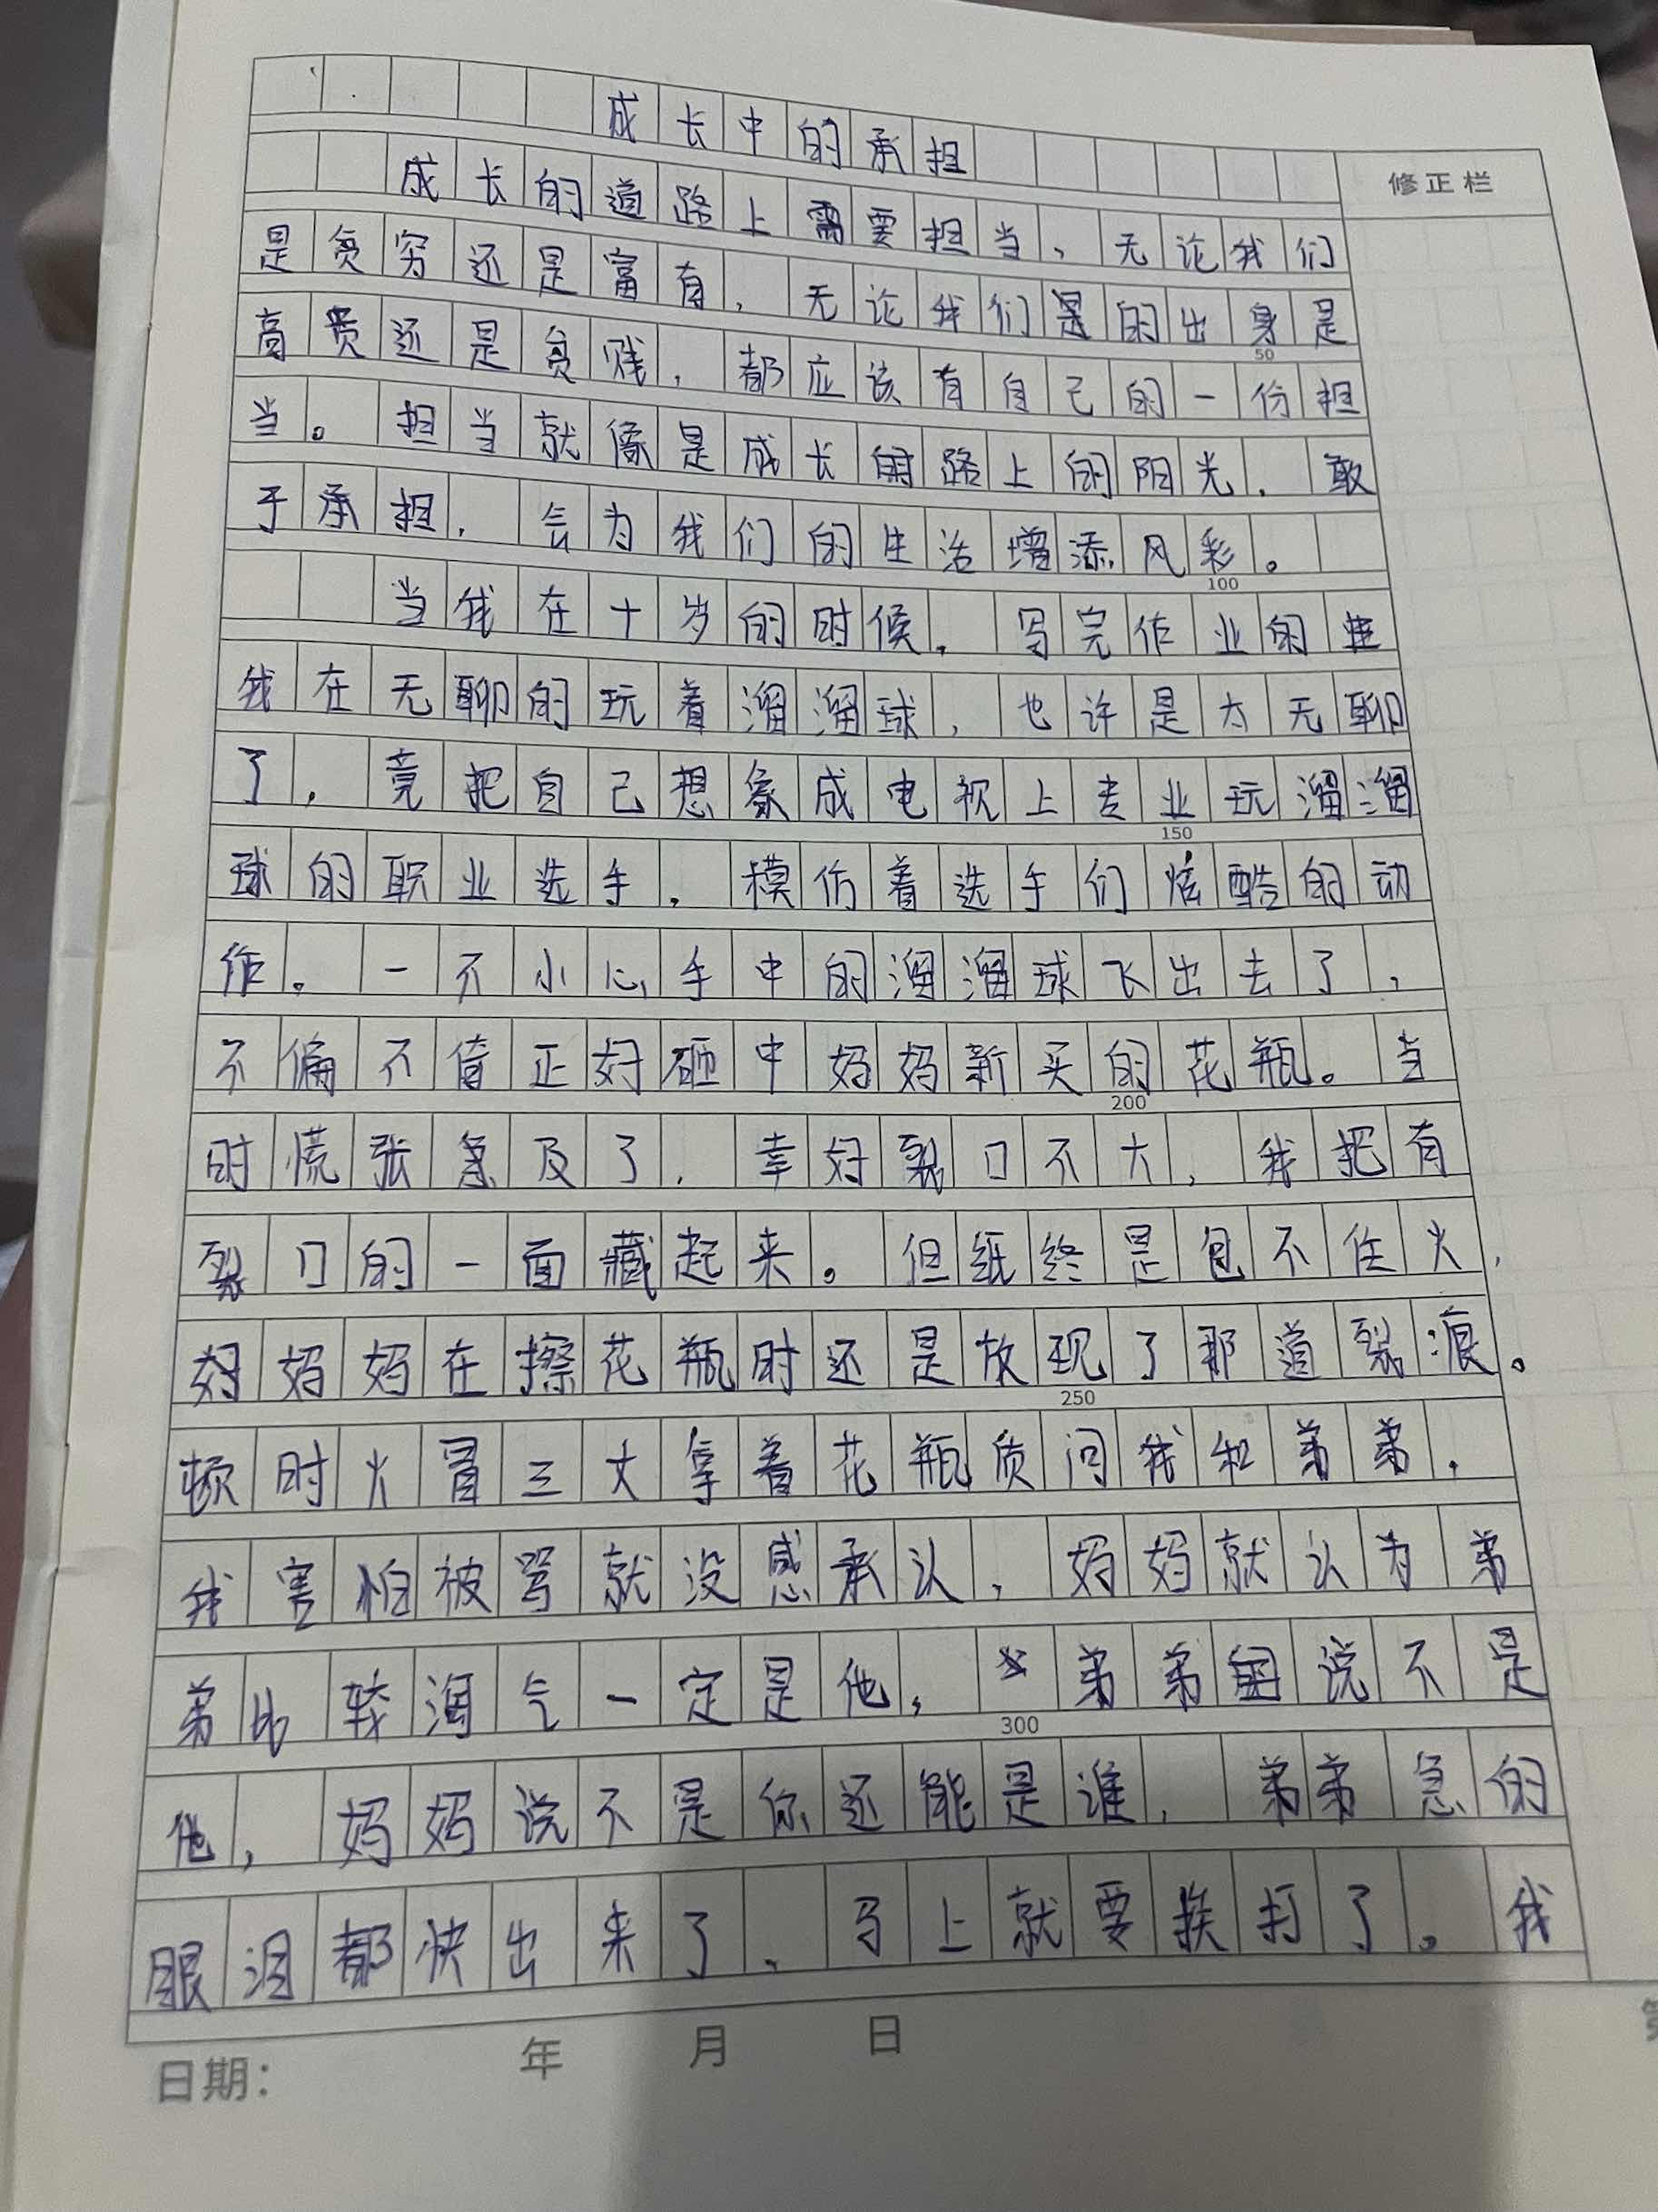 成长中的承担
修正栏
成长的道路上需要担当、无论我们
是贫穷还是富有,无论我们是的出身是
50
高贵还是贫贱,都应该有自己的一份担
当。担当就像是成长的路上的阳光,敢
于承担,会为我们的生活增添风彩。
100
当我在十岁的时候,写完作业的
我在无聊的玩着溜溜球,也许是太无聊
了,竟把自己想象成电视上专业玩溜溜
150
球的职业选手,模仿着选手们炫酷的动
作。一不小心手中的溜溜球飞出去了,
不偏不倚正好砸中妈妈新买的花瓶。当
200
时慌张急及了,幸好裂口不大,我把有
裂口的一面藏起来。但纸终是包不住火,
妈妈在擦花瓶时还是放现了那道裂痕。
250
顿时火冒三丈拿着花瓶质问我和弟弟,
我害怕被骂就没感承认,妈妈就认为弟
弟比较淘气一定是他,弟弟说不是
300
他,妈妈说不是你还能是谁,弟弟急的
眼泪都快出来了、马上就要挨打了。我
日期: 年 月 日